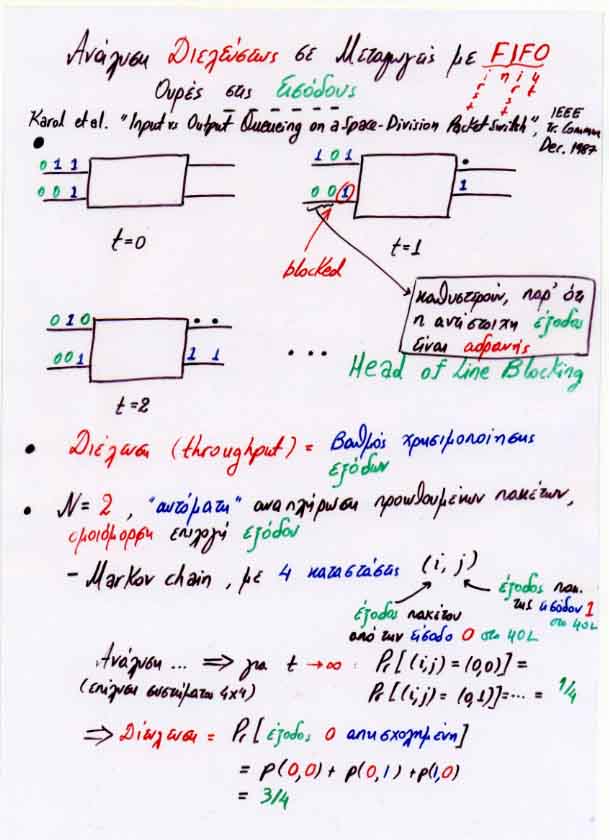 Ανάλυση Διελεύσεως σε Μεταγωγείς με FIFO
irst
n
irst
ut
Ουρές στις Εισόδους
Karol et al. "Input vs Output Queueing on a Space-Division Packet Switch", IEEE
Tr. Commun
Dec. 1987
0 1 1
0 0 1
t=0
1 0 1
0 0 1
1
blocked
t=1
καθυστερούν, παρ' ότι
η αντίστοιχη έξοδος
είναι αδρανής
Head of Line Blocking
0 1 0
0 0 1
1 1
t=2
Διέλευση (throughput) = Βαθμός χρησιμοποίησης
εξόδων
N=2, "αυτόματη" αναπλήρωση προωθουμένων πακέτων,
ομοιόμορφη επιλογή εξόδου
- Markov chain, με 4 καταστάσεις (i, j)
έξοδος πακέτου
από την είσοδο 0 στο HOL
έξοδος πακ.
της εισόδου 1
στο HOL
Ανάλυση ... ⇒ για t → ∞ : Pr[(i,j) = (0,0)] =
(επίλυση συστήματος 4x4) Pr[(i,j) = (0,1)] = ... = 1/4
⇒ Διέλευση = Pr[έξοδος 0 απησχολημένη]
= p(0,0) + p(0,1) + p(1,0)
= 3/4